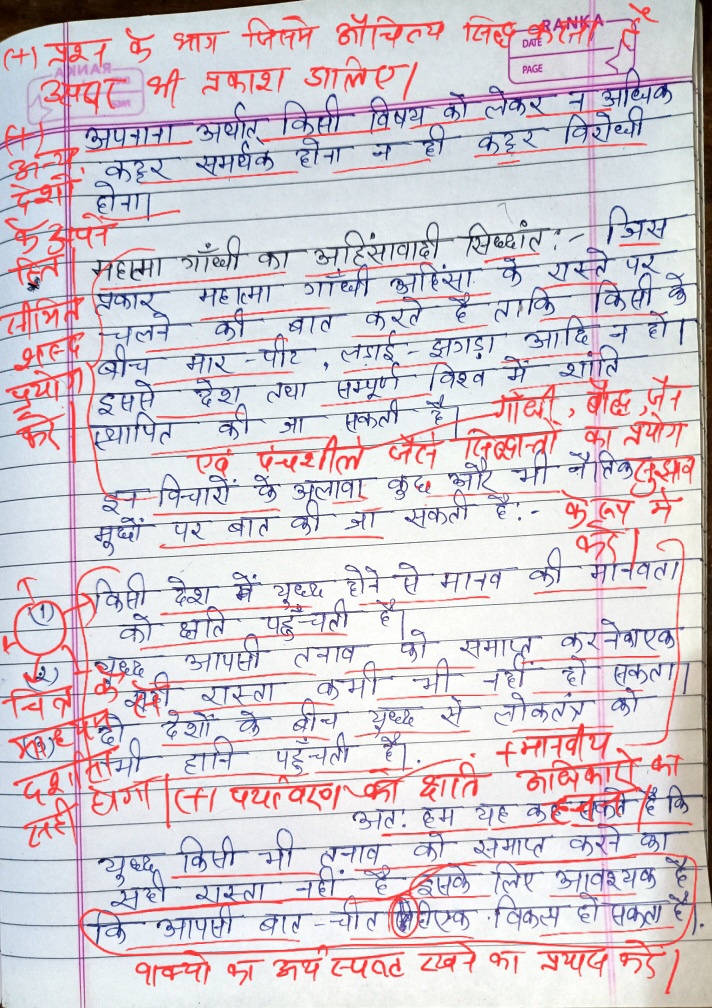 RANKA
DATE
PAGE
(+) प्रश्न के भाग जिसमें औचित्य सिद्ध करना है
उसपर भी प्रकाश डालिए।
अपनाना अर्थात् किसी विषय को लेकर न अधिक
कट्टर समर्थक होना न ही कट्टर विरोधी
होना।
(+)
अन्य
देशों
के अपने
हित।
सीमित
शब्द
प्रयोग
करें
महात्मा गाँधी का अहिंसावादी सिध्दांत:- जिस
प्रकार महात्मा गाँधी अहिंसा के रास्ते पर
चलने की बात करते है ताकि किसी के
बीच मार-पीट, लड़ाई-झगड़ा आदि न हो।
इससे देश तथा सम्पूर्ण विश्व में शांति
स्थापित की जा सकती है।
गाँधी, बौद्ध, जैन
एवं पंचशील जैसे सिद्धान्तों का प्रयोग
सुझाव
के रूप में
करें।
इन विचारों के अलावा कुछ और भी नैतिक
मुद्दों पर बात की जा सकती है:-
(1) किसी देश में युध्द होने से मानव की मानवता
को क्षति पहुँचती है।
(2) युध्द आपसी तनाव को समाप्त करने का एक
सही रास्ता कभी भी नही हो सकता।
(3) दो देशों के बीच युध्द से लोकतंत्र को
भी हानि पहुँचती है।
चित्र के
माध्यम
दर्शाना
सही होगा।
(+) पर्यावरण को क्षति
+मानवीय
अधिकारों का
अत: हम यह कह सकते है कि
युध्द किसी भी तनाव को समाप्त करने का
सही रास्ता नही है इसके लिए आवश्यक है
कि आपसी बात-चीत एक विकल्प हो सकता है।
वाक्यो का अर्थ स्पष्ट रखने का प्रयास करें।